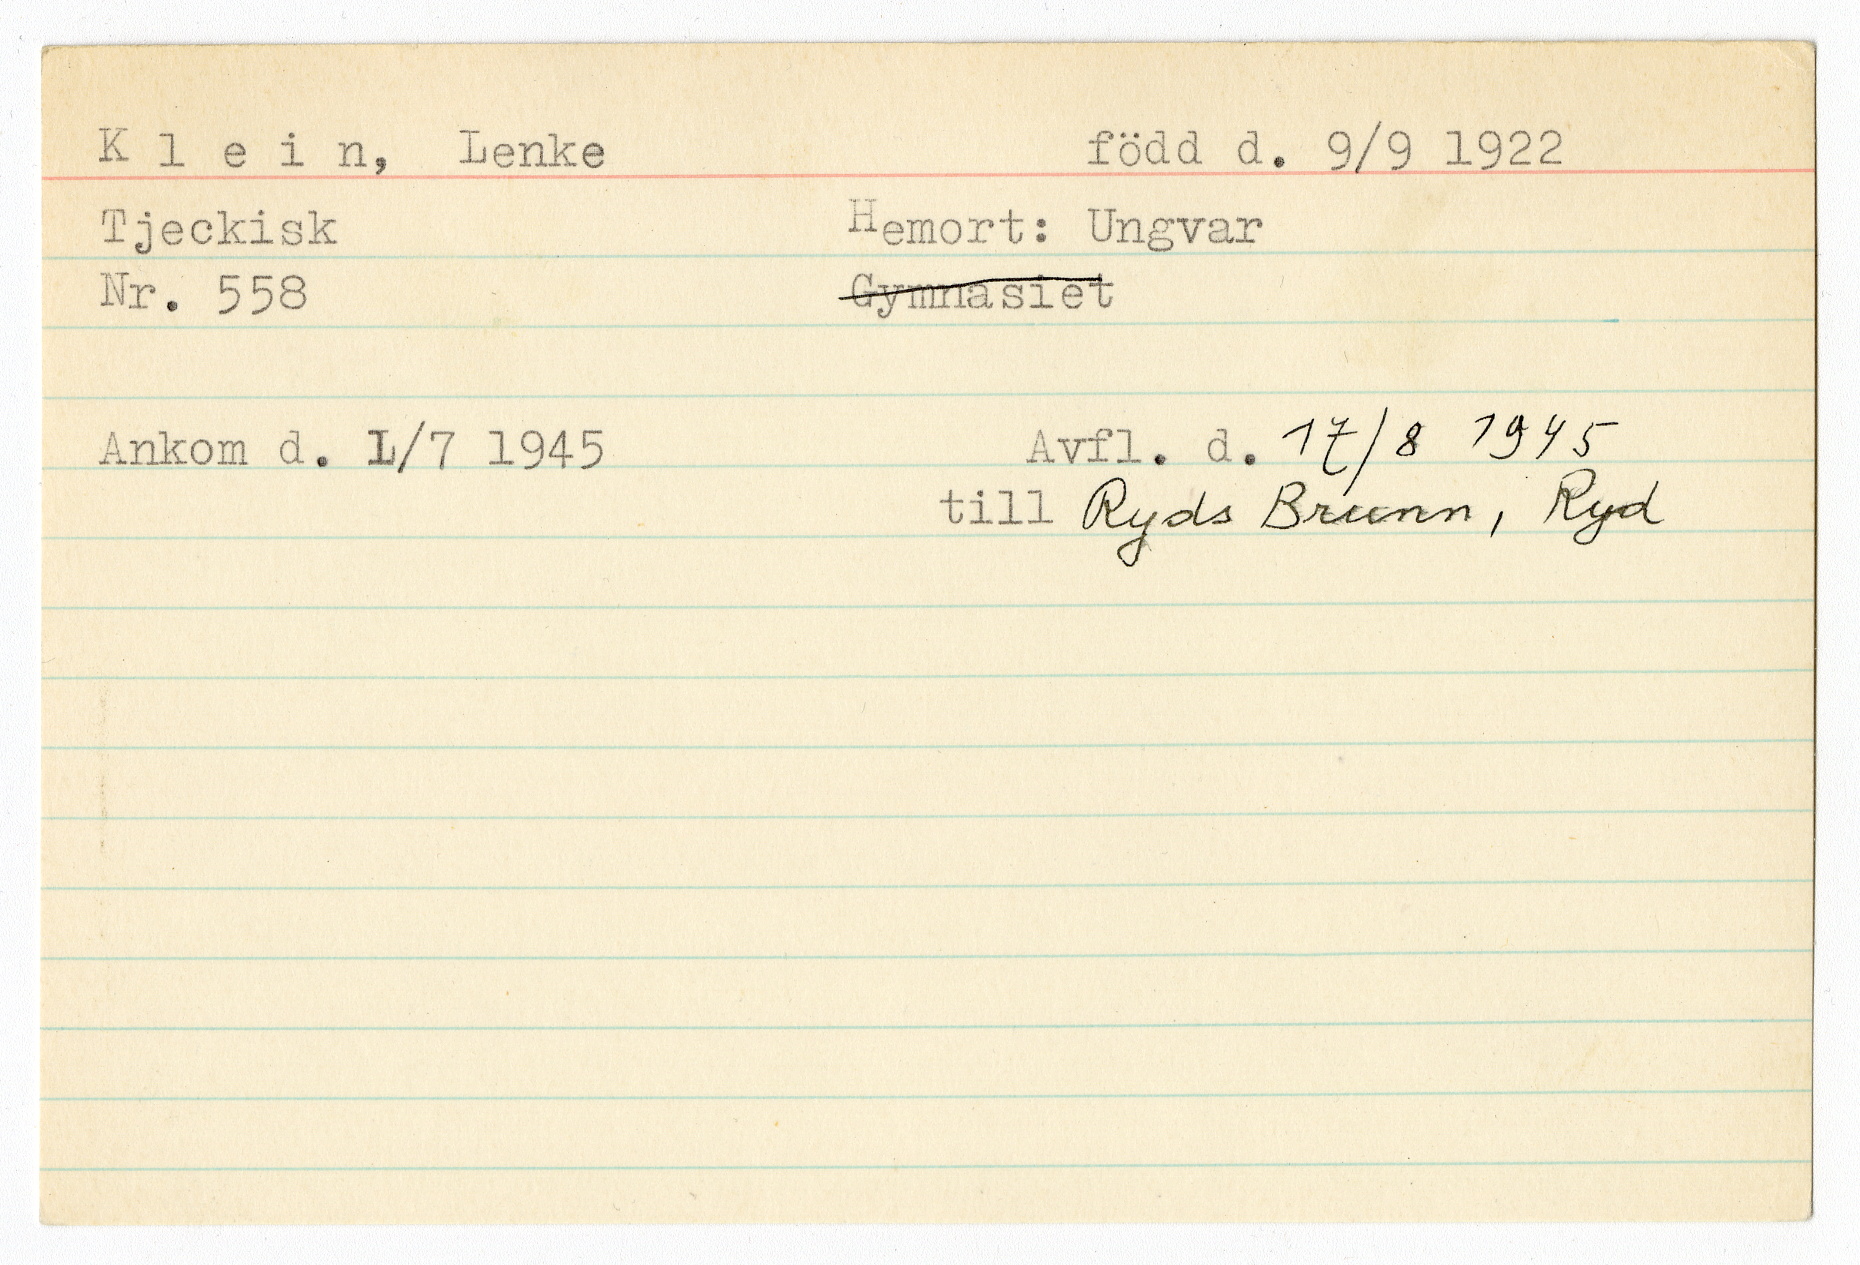 K l e i n, Lenke född d. 9/9 1922
Tjeckisk Hemort: Ungvar
Nr. 558 Gymnasiet
Ankom d. 1/7 1945 Avfl. d. 17/8 1945
till Ryds Brunn, Ryd